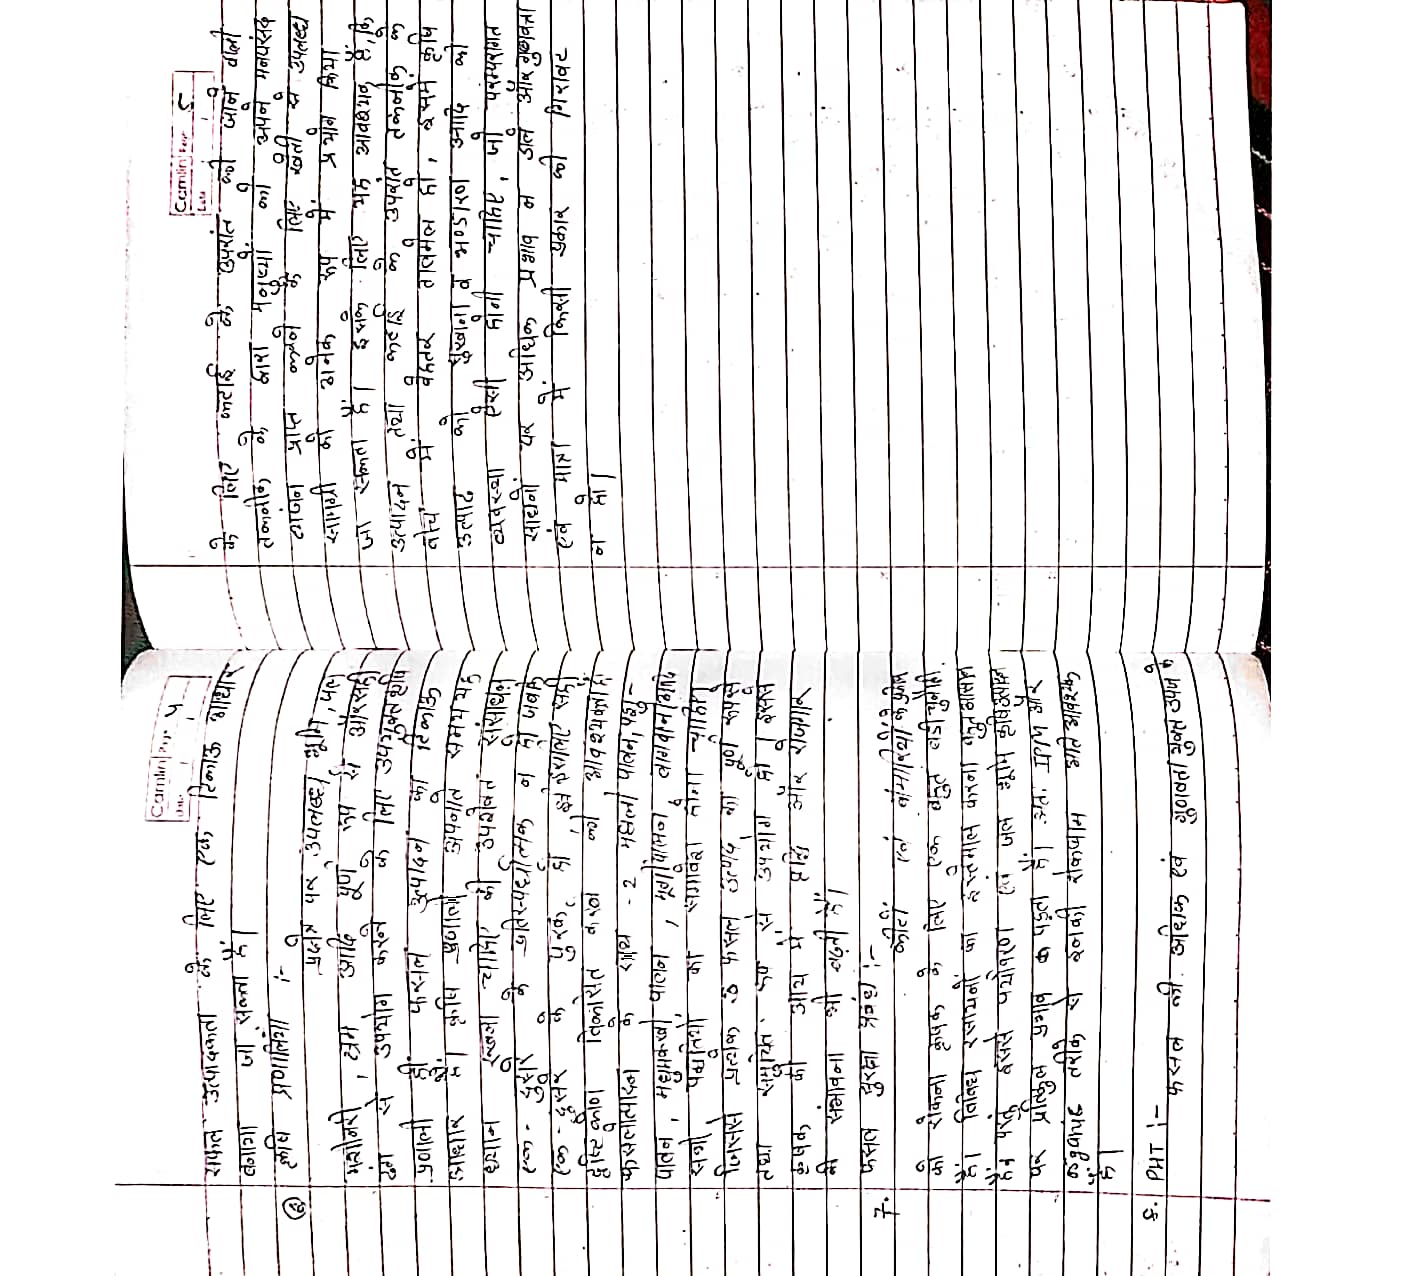 Camlin Page 4
सफल उत्पादकता के लिए एक टिकाऊ आधार
बनाया जा सकता है।
⑥ कृषि प्रणालियां :-
प्रक्षेत्र पर उपलब्ध भूमि, जल
मशीनरी, श्रम आदि पूर्ण रूप से और सही
ढंग से उपयोग करने के लिए उपयुक्त कृषि
प्रणाली ही फसल उत्पादन का टिकाऊ
आधार है। कृषि प्रणाली अपनाते समय यह
ध्यान रखना चाहिए की उपरोक्त संसाधन
एक-दूसरे के प्रतिस्पर्धात्मक न हो जबकि
एक-दूसरे के पूरक हों, इसलिए सही
दृष्टिकोण विकसित करने की आवश्यकता है
फसलोत्पादन के साथ-2 मछली पालन, पशु-
पालन, मधुमक्खी पालन, मुर्गीपालन, बागवानी आदि
सभी पद्धतियों का समावेश होना चाहिए
जिससे प्रत्येक फसल उत्पाद का पूर्ण रूप से
तथा समुचित रूप से उपयोग हो। इससे
कृषक की आय में वृद्धि और रोजगार
की संभावना भी बढ़ती है।
7. फसल सुरक्षा प्रबंध :-
कीटों एवं बीमारियों के नुकसान
को रोकना कृषक के लिए एक बहुत बड़ी चुनौती
है। विविध रसायनों का इस्तेमाल करना बहुत आसान
है परंतु इससे पर्यावरण एवं जल भूमि कृषि उत्पादन
पर प्रतिकूल प्रभाव पड़ता है। अतः
तरीके से इनकी रोकथाम अति आवश्यक
है।
8. PHT :-
फसल की अधिक एवं गुणवत्ता युक्त उपज
Camlin Page 5
के लिए कटाई के उपरांत की जाने वाली
तकनीक के द्वारा मनुष्यों को अपने मनपसंद
भोजन प्राप्त करने के लिए खेती से उपलब्ध
सामग्री को अनेक रूप में प्रयोग किया
जा सकता है। इसके लिए यह आवश्यक है, कि
उत्पादन तथा कटाई के उपरांत तकनीक के
बीच में बेहतर तालमेल हो, इसमें कृषि
उत्पाद को सुखाने व भण्डारण आदि की
व्यवस्था ऐसी होनी चाहिए, जो परम्परागत
साधनों पर अधिक प्रभाव न डाले और गुणवत्ता
एवं मात्रा में किसी प्रकार की गिरावट
न हो।